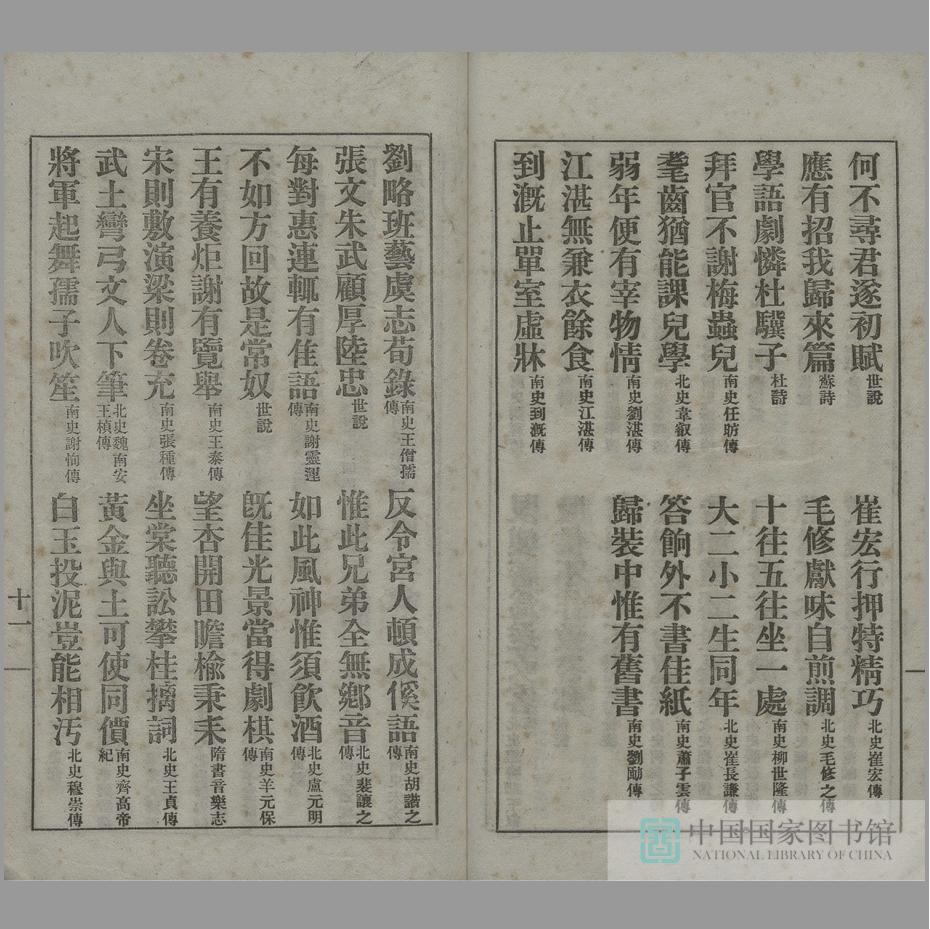 何不尋君遂初賦 世說 崔宏行押特精巧 北史崔宏傳
應有招我歸來篇 蘇詩 毛修獻味自煎調 北史毛修之傳
學語劇憐杜驥子 杜詩 十往五往坐一處 南史柳世隆傳
拜官不謝梅蟲兒 南史任昉傳 大二小二生同年 北史崔長謙傳
耄齒猶能課兒學 北史韋叡傳 答餉外不書佳紙 南史蕭子雲傳
弱年便有宰物情 南史劉湛傳 歸裝中惟有舊書 南史劉勔傳
江湛無兼衣餘食 南史江湛傳
到溉止單室虛牀 南史到溉傳
劉略班藝虞志荀錄 南史王僧孺傳 反令宮人頓成傒語 南史胡諧之傳
張文朱武顧厚陸忠 世說 惟此兄弟全無鄉音 北史裴讓之傳
每對惠連輒有佳語 南史謝靈運傳 如此風神惟須飲酒 北史盧元明傳
不如方回故是常奴 世說 旣佳光景當得劇棋 南史羊元保傳
王有養炬謝有覽舉 南史王泰傳 望杏開田瞻榆秉耒 隋書音樂志
宋則敷演梁則卷充 南史張種傳 坐棠聽訟攀桂摛詞 北史王貞傳
武士彎弓文人下筆 北史魏南安王楨傳 黃金與土可使同價 南史齊高帝紀
將軍起舞孺子吹笙 南史謝恂傳 白玉投泥豈能相汚 北史穆崇傳
十一
中国国家图书馆
NATIONAL LIBRARY OF CHINA